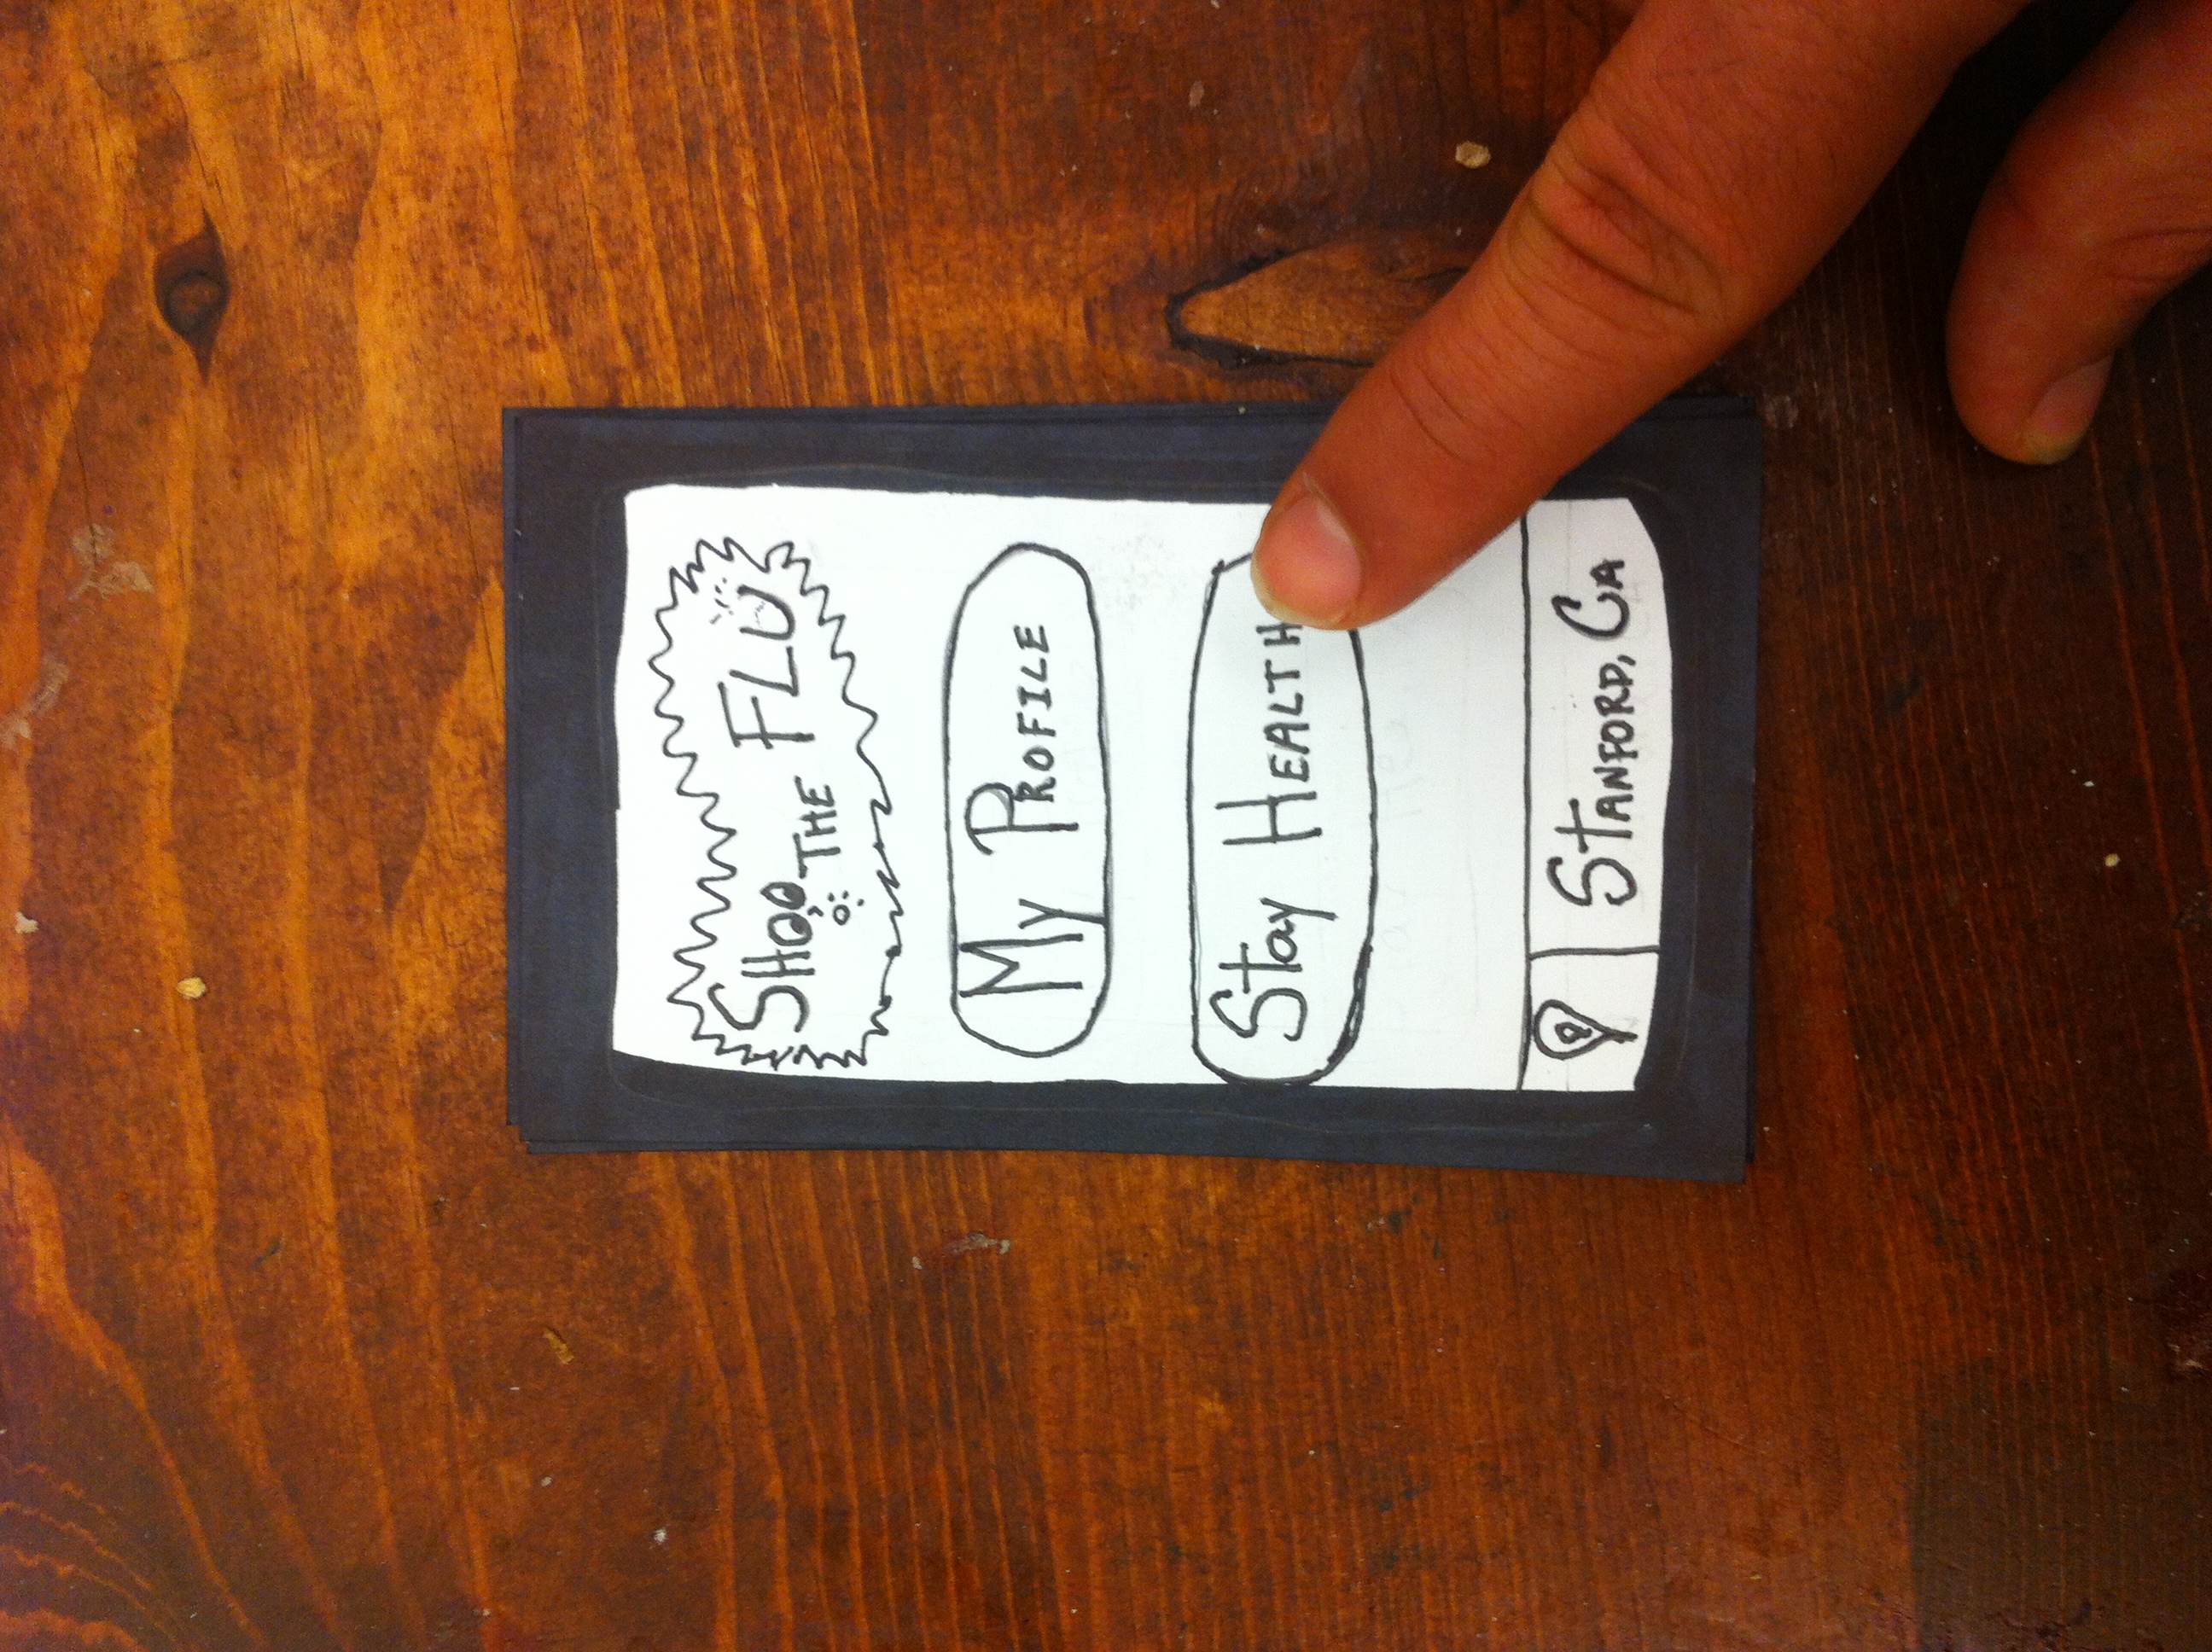 SHOO THE FLU
My PROFILE
Stay HEALTH
STANFORD, CA